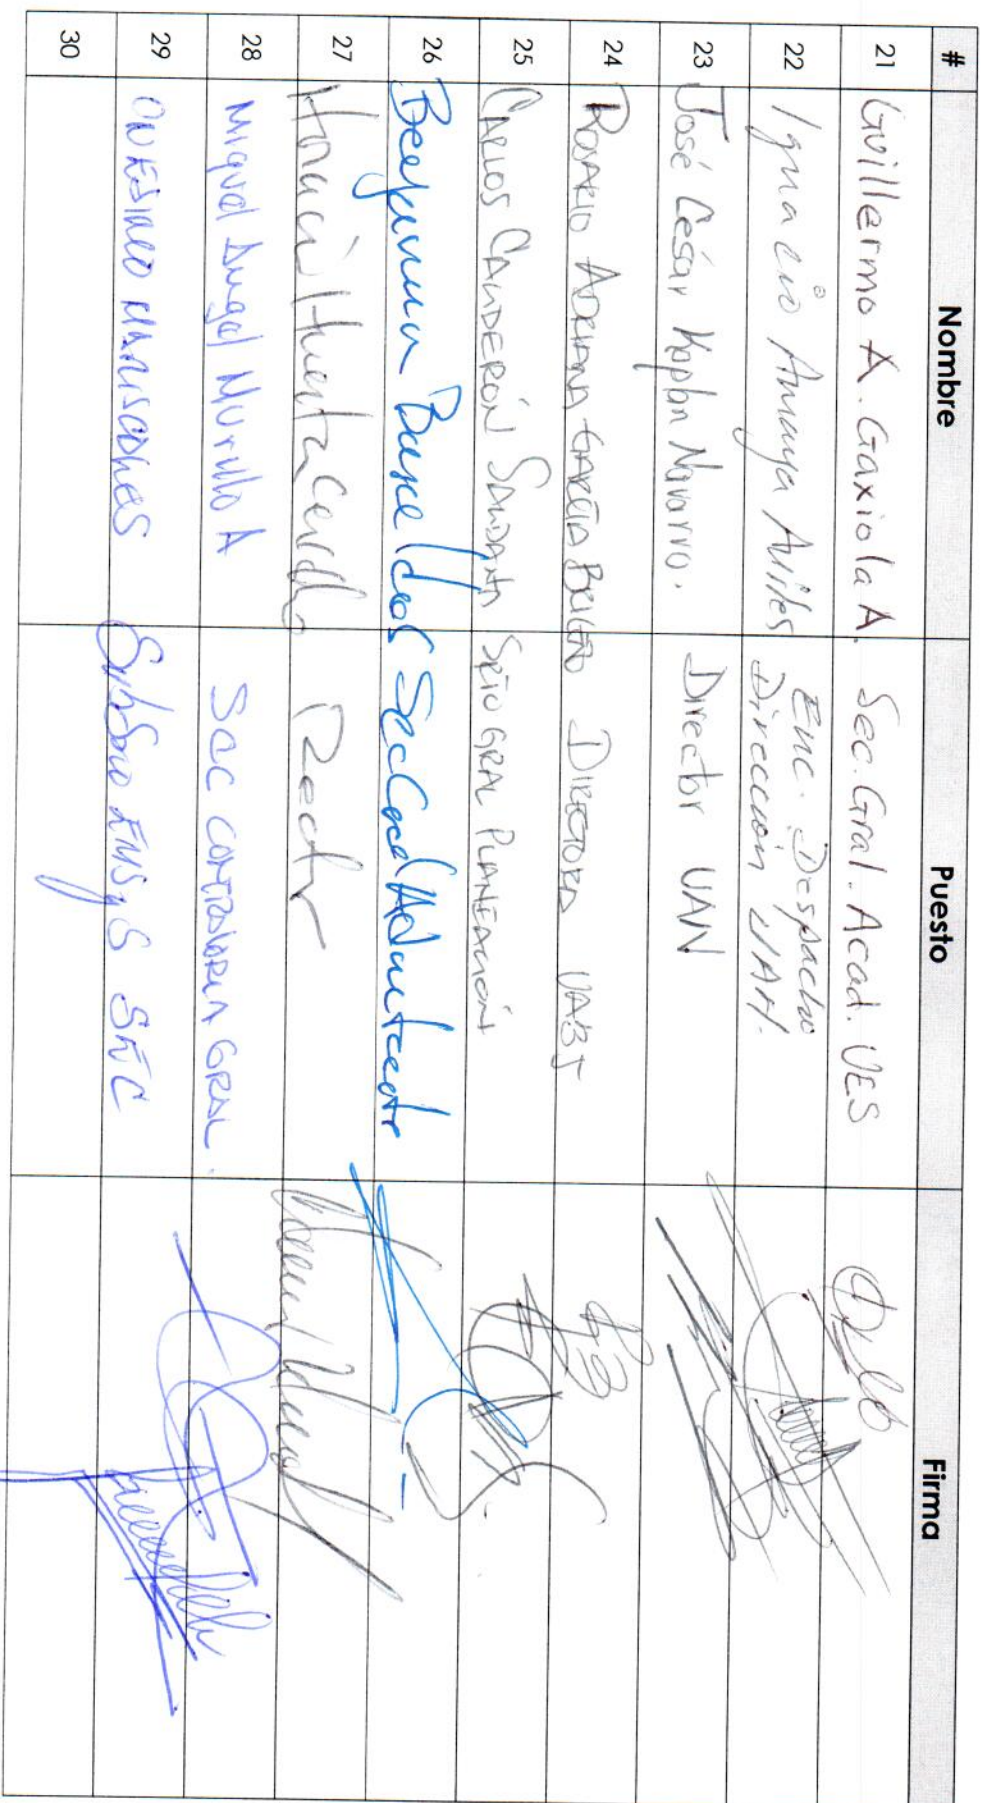 # Nombre Puesto Firma
21 Guillermo A. Gaxiola A. Sec. Gral. Acad. UES
22 Ignacio Amaya Aviles Enc. Despacho
Dirección UAH.
23 José César Kaplan Navarro. Director UAN
24 Rosario Adriana García Bojórquez DIRECTORA UABJ
25 CARLOS CALDERÓN SRIO GRAL PLANEACIÓN
26 Sec Gral
27 Horacio Huerta Cevallos Rector
28 Miguel Angel Murillo A Sec CONTRALORIA GRAL.
29 ONESIMO MARISCALES SubSrio EMS y S SEC
30